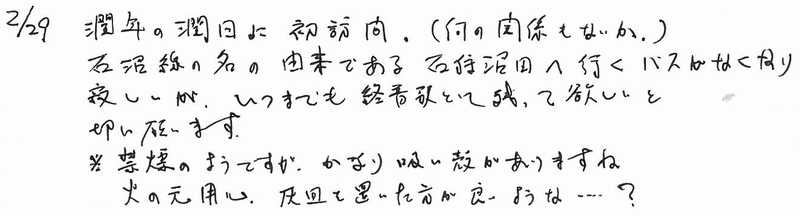 2/29 潤年の潤日に初訪問.(何の関係もないか.)
石沼線の名の由来である石狩沼田へ行くバスがなくなり
寂しいが.いつまでも終着駅として残って欲しいと
切に願います.
※禁煙のようですが.かなり吸い殻がありますね
火の元用心.灰皿を置いた方が良いような……?